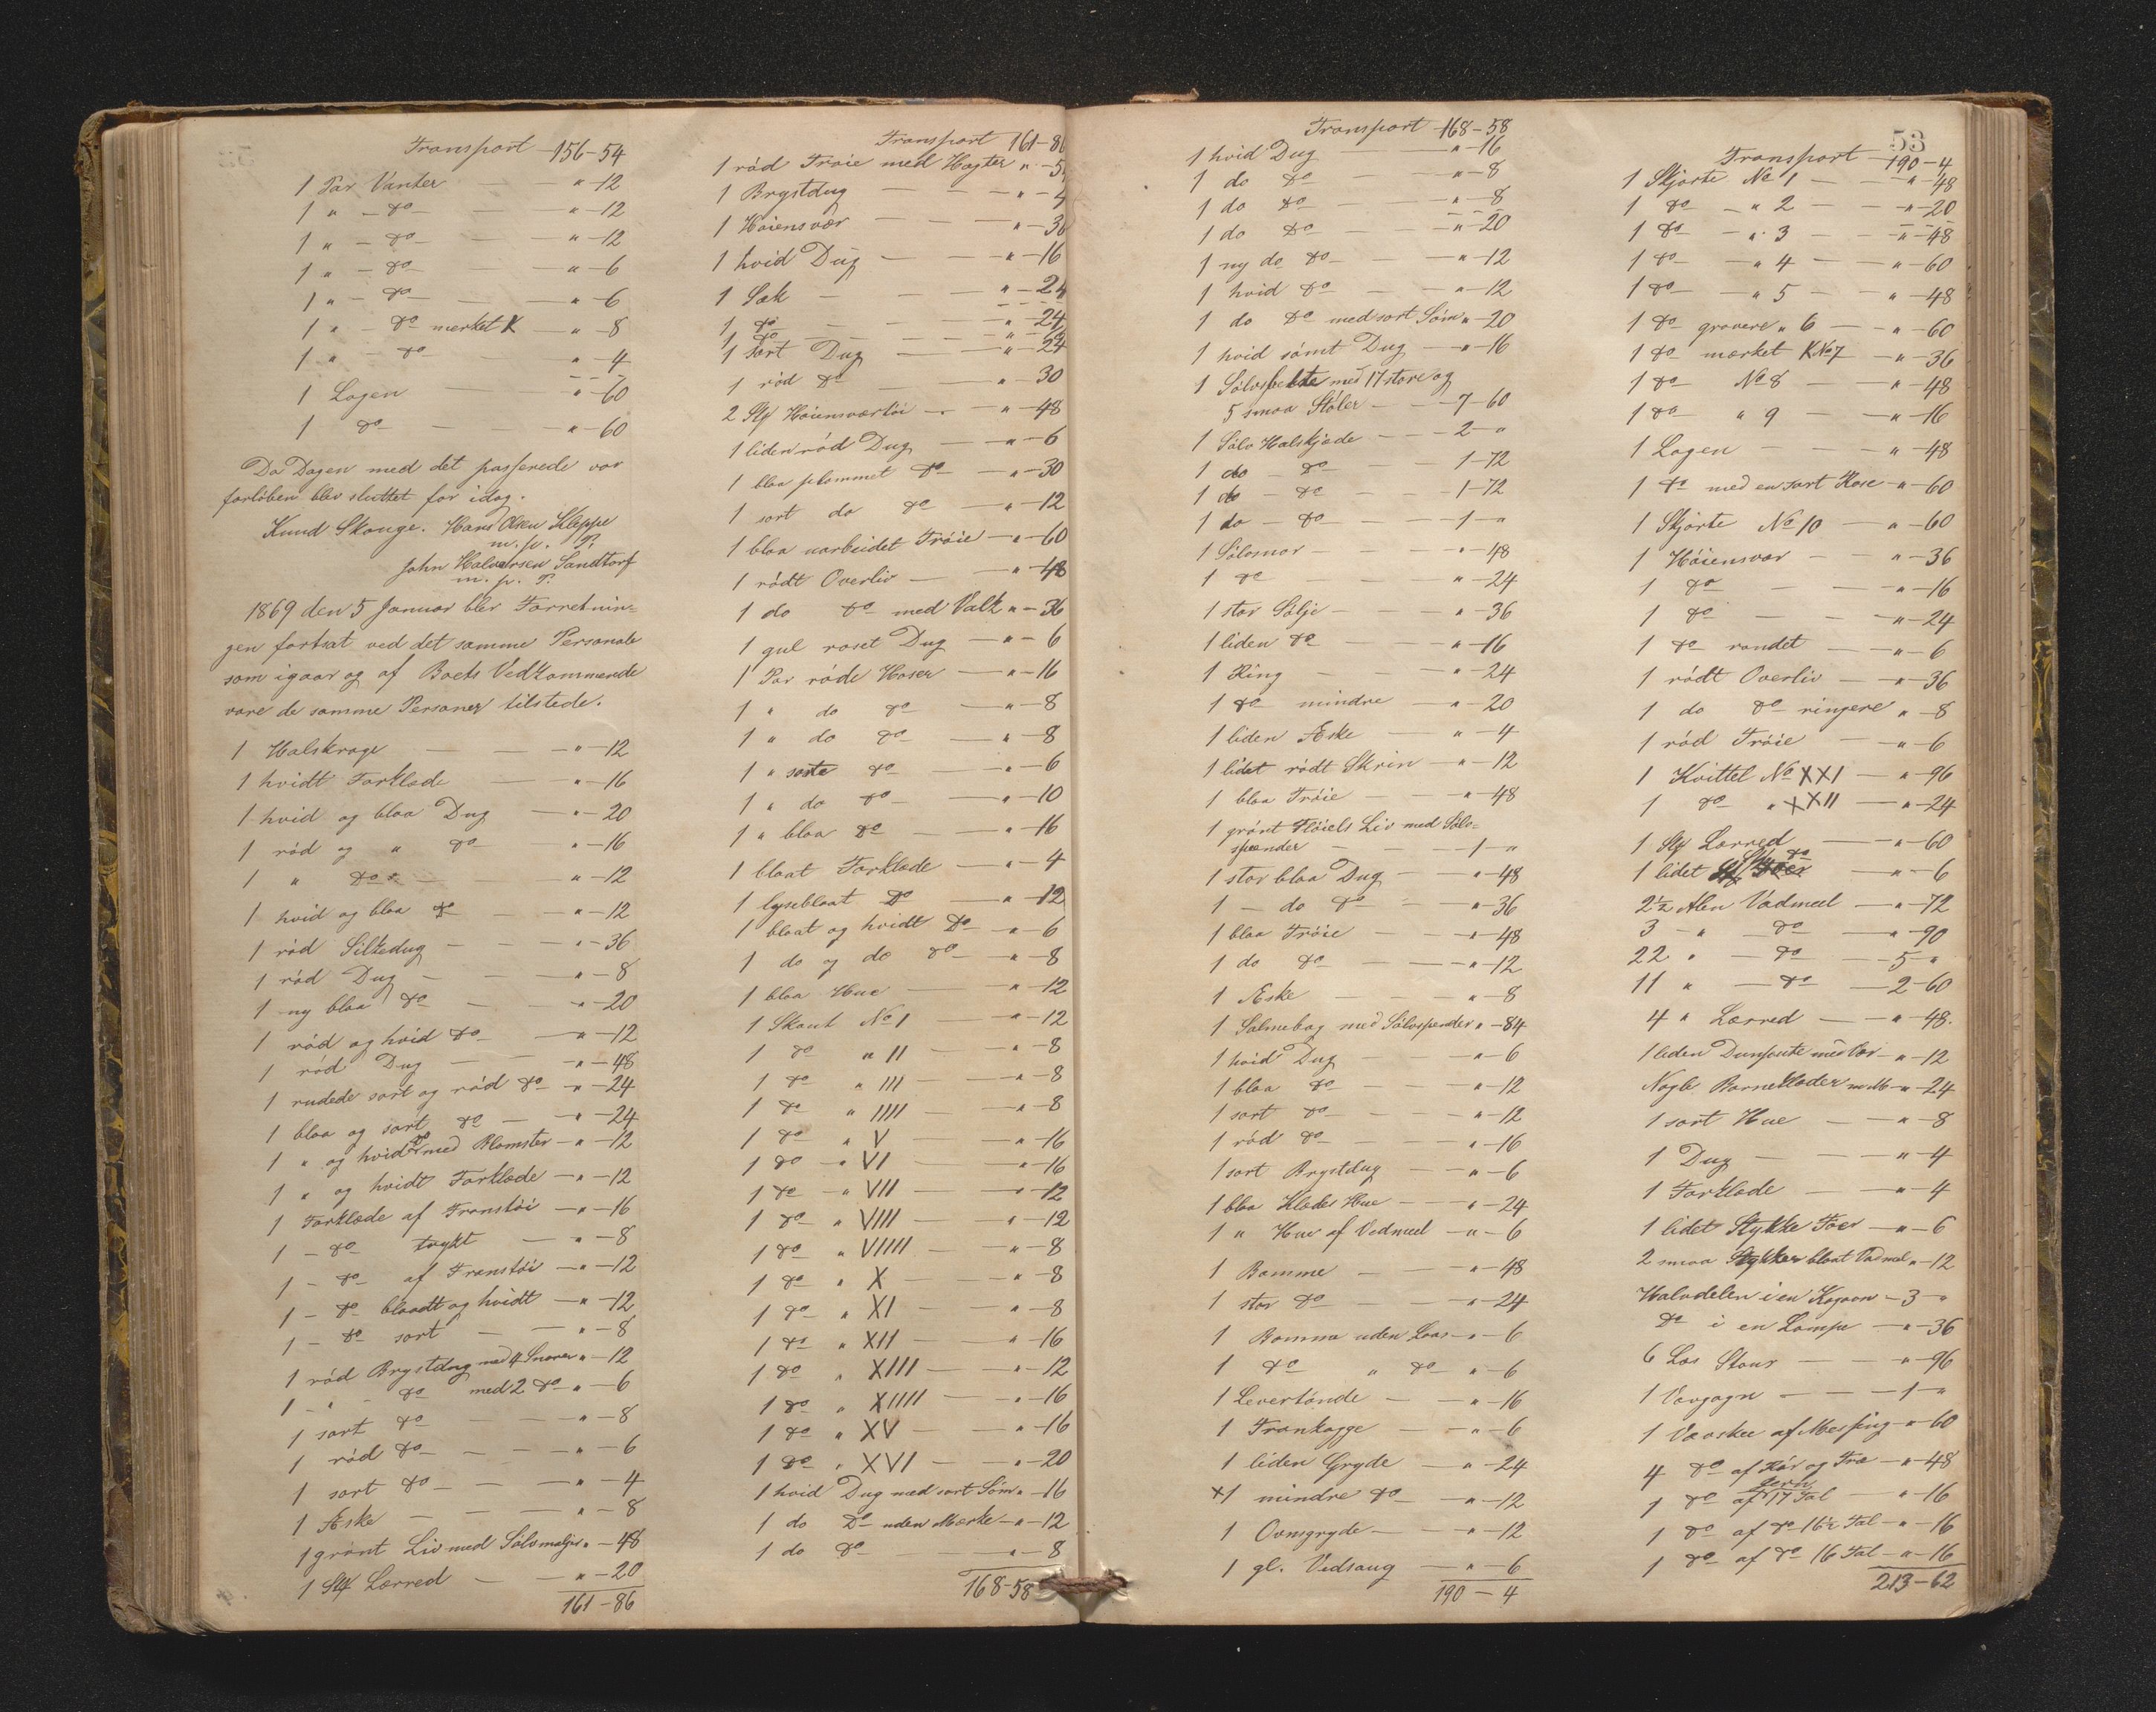 Transport 156-54
1 Par Vanter — " -12
1 " - do — " -12
1 " - do — " -12
1 " - do — " -6
1 " - do — " -6
1 " - do mærket K — " -8
1 " - do — " -4
1 Lagen — " -60
1 do — " -60
Da Dagen med det passerede var
forløben blev sluttet for idag.
Knud Skauge. Hans Olsen Kleppe
m. p. P.
John Halvorsen Sandtorf
m. p. P.
1869 den 5 Januar blev Forretnin=
gen fortsat ved det samme Personale
som igaar og af Boets Vedkommende
vare de samme Personer tilstede.
1 Halskrage — " -12
1 hvidt Forklæde " -16
1 hvid og blaa Dug — " -20
1 rød og " do " -16
1 " do " — " -12
1 hvid og blaa do — " -12
1 rød Silkedug — " -36
1 rød Dug — " -8
1 ny blaa do — " -20
1 rød og hvid do — " -12
1 rød Dug — " -48
1 rudede sort og rød do — " -24
1 blaa og sort do — " -24
1 " og hvid do med Blomster — " -12
1 " og hvidt Forklæde — " -12
1 Forklæde af Franstøi — " -16
1 - do trykt — " -8
1 - do af Franstøi — " -12
1 - do blaadt og hvidt — " -12
1 - do sort — " -8
1 rød Brystdug med 4 Snorer " -12
1 - " - do med 2 do " -6
1 sort do — " -8
1 rød do — " -6
1 sort do — " -4
1 Æske — " -8
1 grønt Liv med Sølvmaljer " -48
1 Stk Lærred — " -20
161-86
Transport 161-86
1 rød Trøie med Hagter " -5
1 Brystdug — " -4
1 Høiensvær — " -36
1 hvid Dug — " -16
1 Sæk — " -24
1 do — " -24
1 do — "
1 sort Dug — " -24
1 rød do — " -30
2 Stk Høiensværtøi — " -48
1 liden rød Dug — " -6
1 blaa plommet do — " -30
1 sort do do — " -12
1 blaa uarbeidet Trøie — " -60
1 rødt Overliv — " -48
1 do do med Valk " -36
1 gul roset Dug — " -6
1 Par røde Hoser — " -16
1 " do do — " -8
1 " do do — " -8
1 " sorte do — " -6
1 " do do — " -10
1 " blaa do — " -16
1 blaat Forklæde — " -4
1 lyseblaat do — " -12
1 blaat og hvidt do — " -6
1 do og do do — " -8
1 blaa Hue — " -12
1 Skaut No 1 — " -12
1 do " II — " -8
1 do " III — " -8
1 do " IIII — " -8
1 do " V — " -16
1 do " VI — " -16
1 do " VII — " -12
1 do " VIII — " -12
1 do " VIIII — " -8
1 do " X — " -8
1 do " XI — " -8
1 do " XII — " -16
1 do " XIII — " -12
1 do " XIIII — " -16
1 do " XV — " -16
1 do " XVI — " -20
1 hvid Dug med sort Søm " -16
1 do do uden Mærke — " -12
1 do do — " -8
168-58
Transport 168-58
1 hvid Dug — " -16
1 do do — " -8
1 do do — " -8
1 do do — " -20
1 ny do do — " -12
1 hvid do — " -12
1 do do med sort Søm " -20
1 hvid sømt Dug — " -16
1 Sølvbelte med 17 store og
5 smaa Støler — 7-60
1 Sølv Halskjæde — 2- "
1 do - do — 1-72
1 do - do — 1-72
1 do - do — 1- "
1 Sølvsnor — " -48
1 do — " -24
1 stor Sølje — " -36
1 liden do — " -16
1 Ring — " -24
1 do mindre — " -20
1 liden Æske — " -4
1 lidet rødt Skrin — " -12
1 blaa Trøie — " -48
1 grønt Fløiels Liv med Sølv=
spænder — 1- "
1 stor blaa Dug — " -48
1 - do do — " -36
1 blaa Trøie — " -48
1 do do — " -12
1 Æske — " -8
1 Salmebog med Sølvspender " -84
1 hvid Dug — " -6
1 blaa do — " -12
1 sort do — " -12
1 rød do — " -16
1 sort Brystdug — " -6
1 blaa Klædes Hue — " -24
1 " Hue af Vadmel — " -6
1 Bomme — " -48
1 stor do — " -24
1 Bomme uden Laas — " -6
1 do " do " -6
1 Levertønde — " -16
1 Trankagge — " -6
1 liden Gryde — " -24
+1 mindre do — " -12
1 Ovnsgryde — " -12
1 gl. Vedsaug — " -6
190-4
53
Transport 190-4
1 Skjorte No 1 — " -48
1 do — " 2 — " -20
1 do — " 3 — " -48
1 do — " 4 — " -60
1 do — " 5 — " -48
1 do grovere " 6 — " -60
1 do mærket K No 7 — " -36
1 do No 8 — " -48
1 do " 9 — " -16
1 Lagen — " -48
1 do med en sort Rose — " -60
1 Skjorte No 10 — " -60
1 Høiensvær — " -36
1 do — " -16
1 do — " -24
1 do randet — " -6
1 rødt Overliv — " -36
1 do do ringere " -8
1 rød Trøie — " -6
1 Kvittel No XXI — " -96
1 do " XXII — " -24
1 Stk Lærred — " -60
1 lidet Stk do — " -6
2½ Alen Vadmel — " -72
3 - " do — " -90
22 " - do — 5- "
11 " - do — 2-60
4 " Lærred — " -48.
1 liden Dunpute med Vor — " -12
Nogle Barneklæder m. M. " -24
1 sort Hue — " -8
1 Dug — " -4
1 Forklæde — " -4
1 lidet Stykke Foer — " -6
2 smaa Stykker blaat Vadmel " -12
Halvdelen i en Kagovn - 3- "
do i en Lampe — " -36
6 Læs Staur — " -96
1 Vævgogn — 1- "
1 Vævskee af Messing - " -60
4 do af Rør og Træ — " -48
1 do af Jern 17 Tal — " -16
1 do af do 16½ Tal — " -16
1 do af do 16 Tal — " -16
213-62